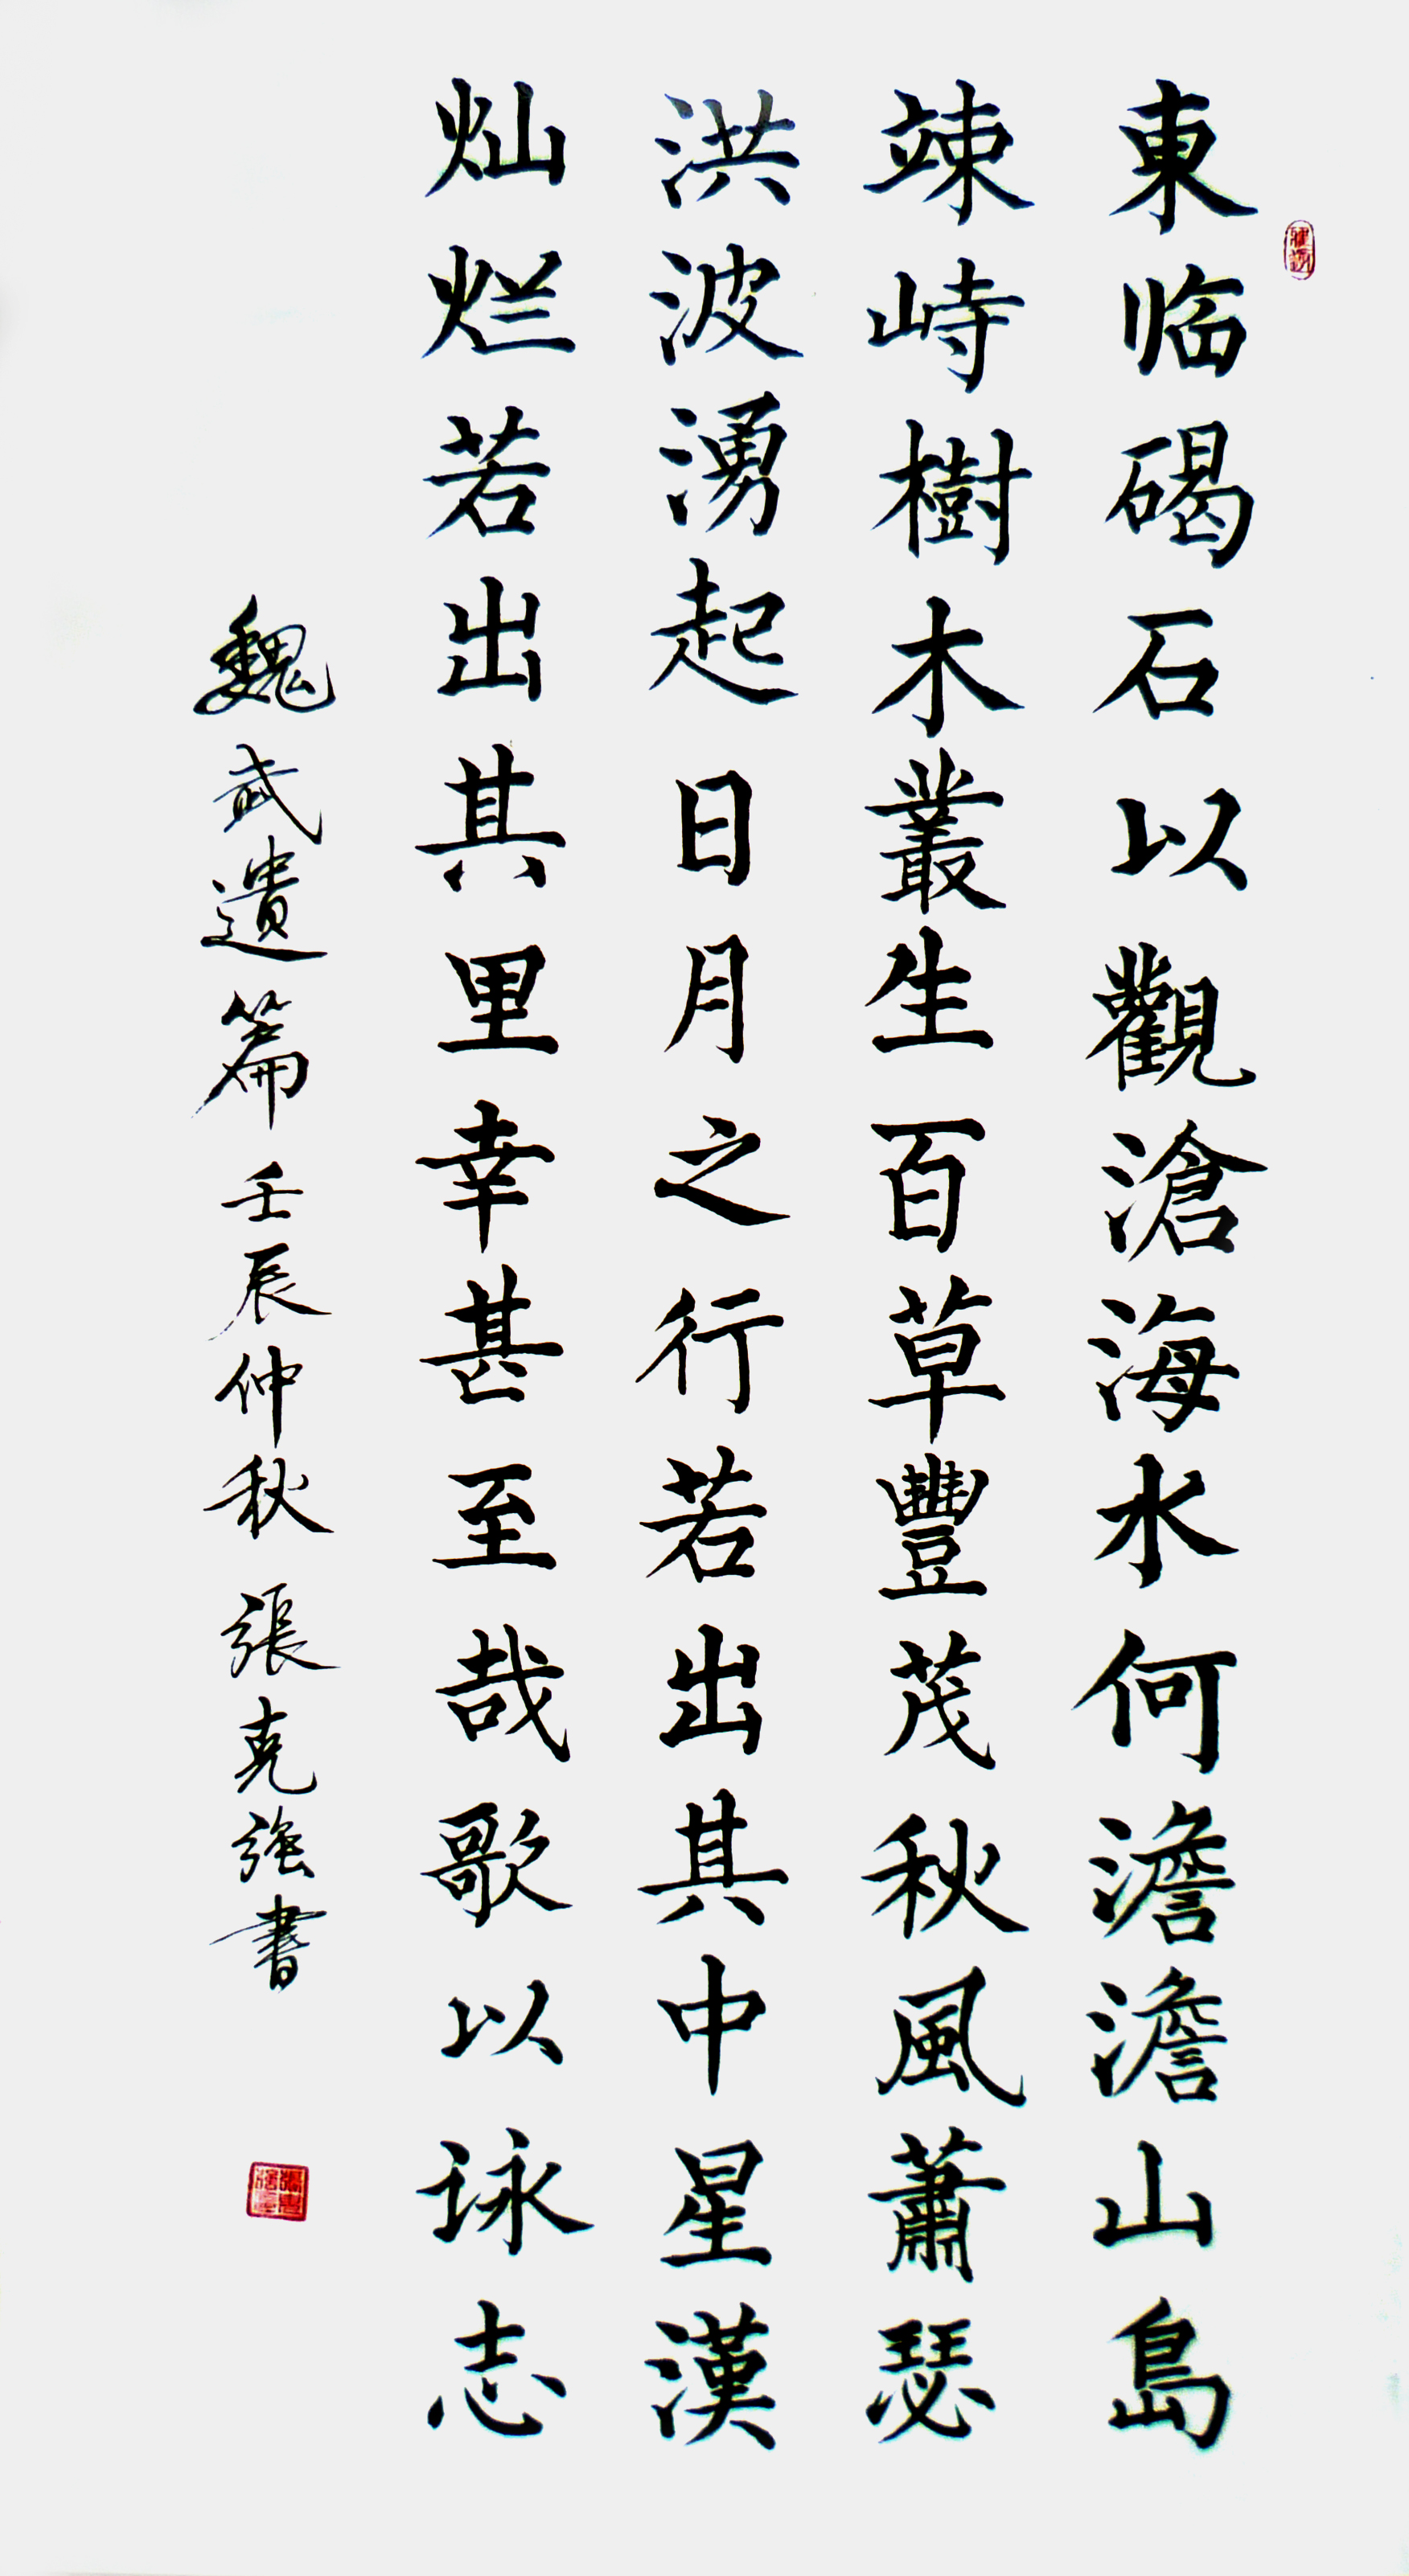 東临碣石以觀滄海水何澹澹山島
竦峙樹木叢生百草豐茂秋風蕭瑟
洪波湧起日月之行若出其中星漢
灿烂若出其里幸甚至哉歌以詠志
魏武遺篇壬辰仲秋張克強書